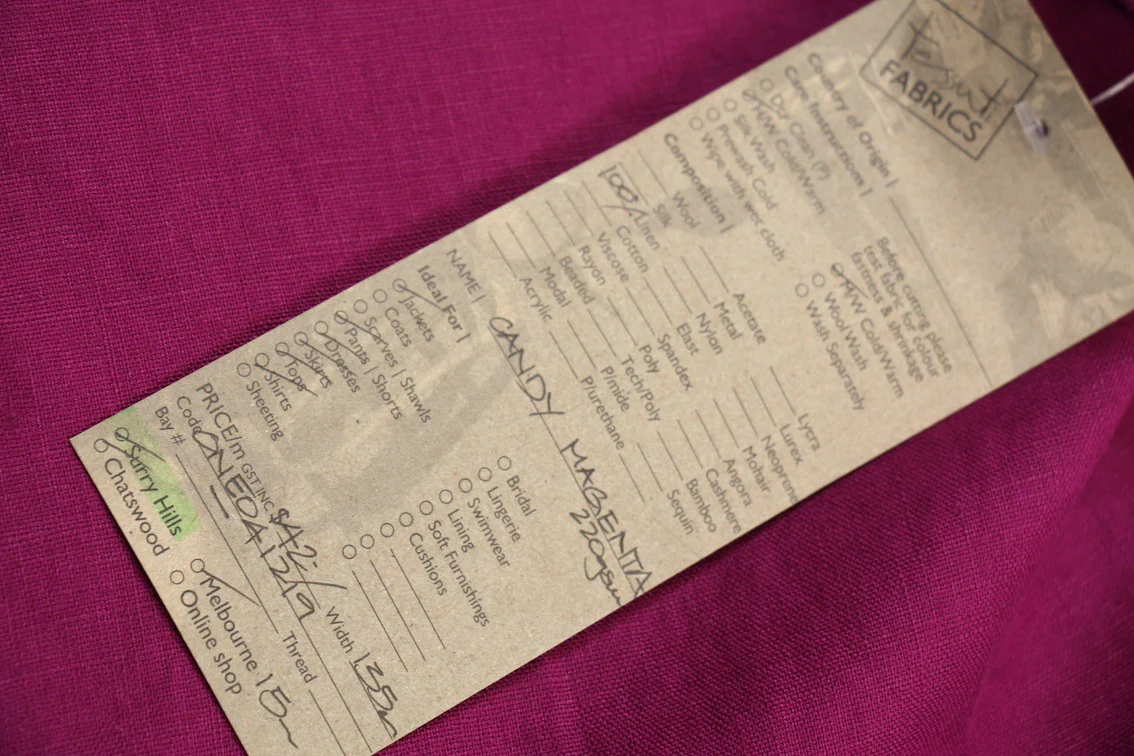 Tessuti
FABRICS
Country of Origin |
Care Instructions |
Dry Clean (P)
M/W Cold/Warm
Silk Wash
Prewash Cold
Wipe with wet cloth
Before cutting please
test fabric for colour
fastness & shrinkage
M/W Cold/Warm
Wool Wash
Wash Separately
Composition |
Wool
Silk
100% Linen
Cotton
Viscose
Rayon
Beaded
Modal
Acrylic
Acetate
Metal
Nylon
Elast
Spandex
Poly
Tech/Poly
P/mide
P/urethane
Lycra
Lurex
Neoprene
Mohair
Angora
Cashmere
Bamboo
Sequin
NAME | CANDY MAGENTA
220gsm
Ideal For |
Jackets
Coats
Scarves | Shawls
Pants | Shorts
Dresses
Skirts
Tops
Shirts
Sheeting
Bridal
Lingerie
Swimwear
Lining
Soft Furnishings
Cushions
PRICE/m GST INC $42/ Width 135m
Code Thread
Bay #
Surry Hills
Chatswood
Melbourne 15m
Online shop